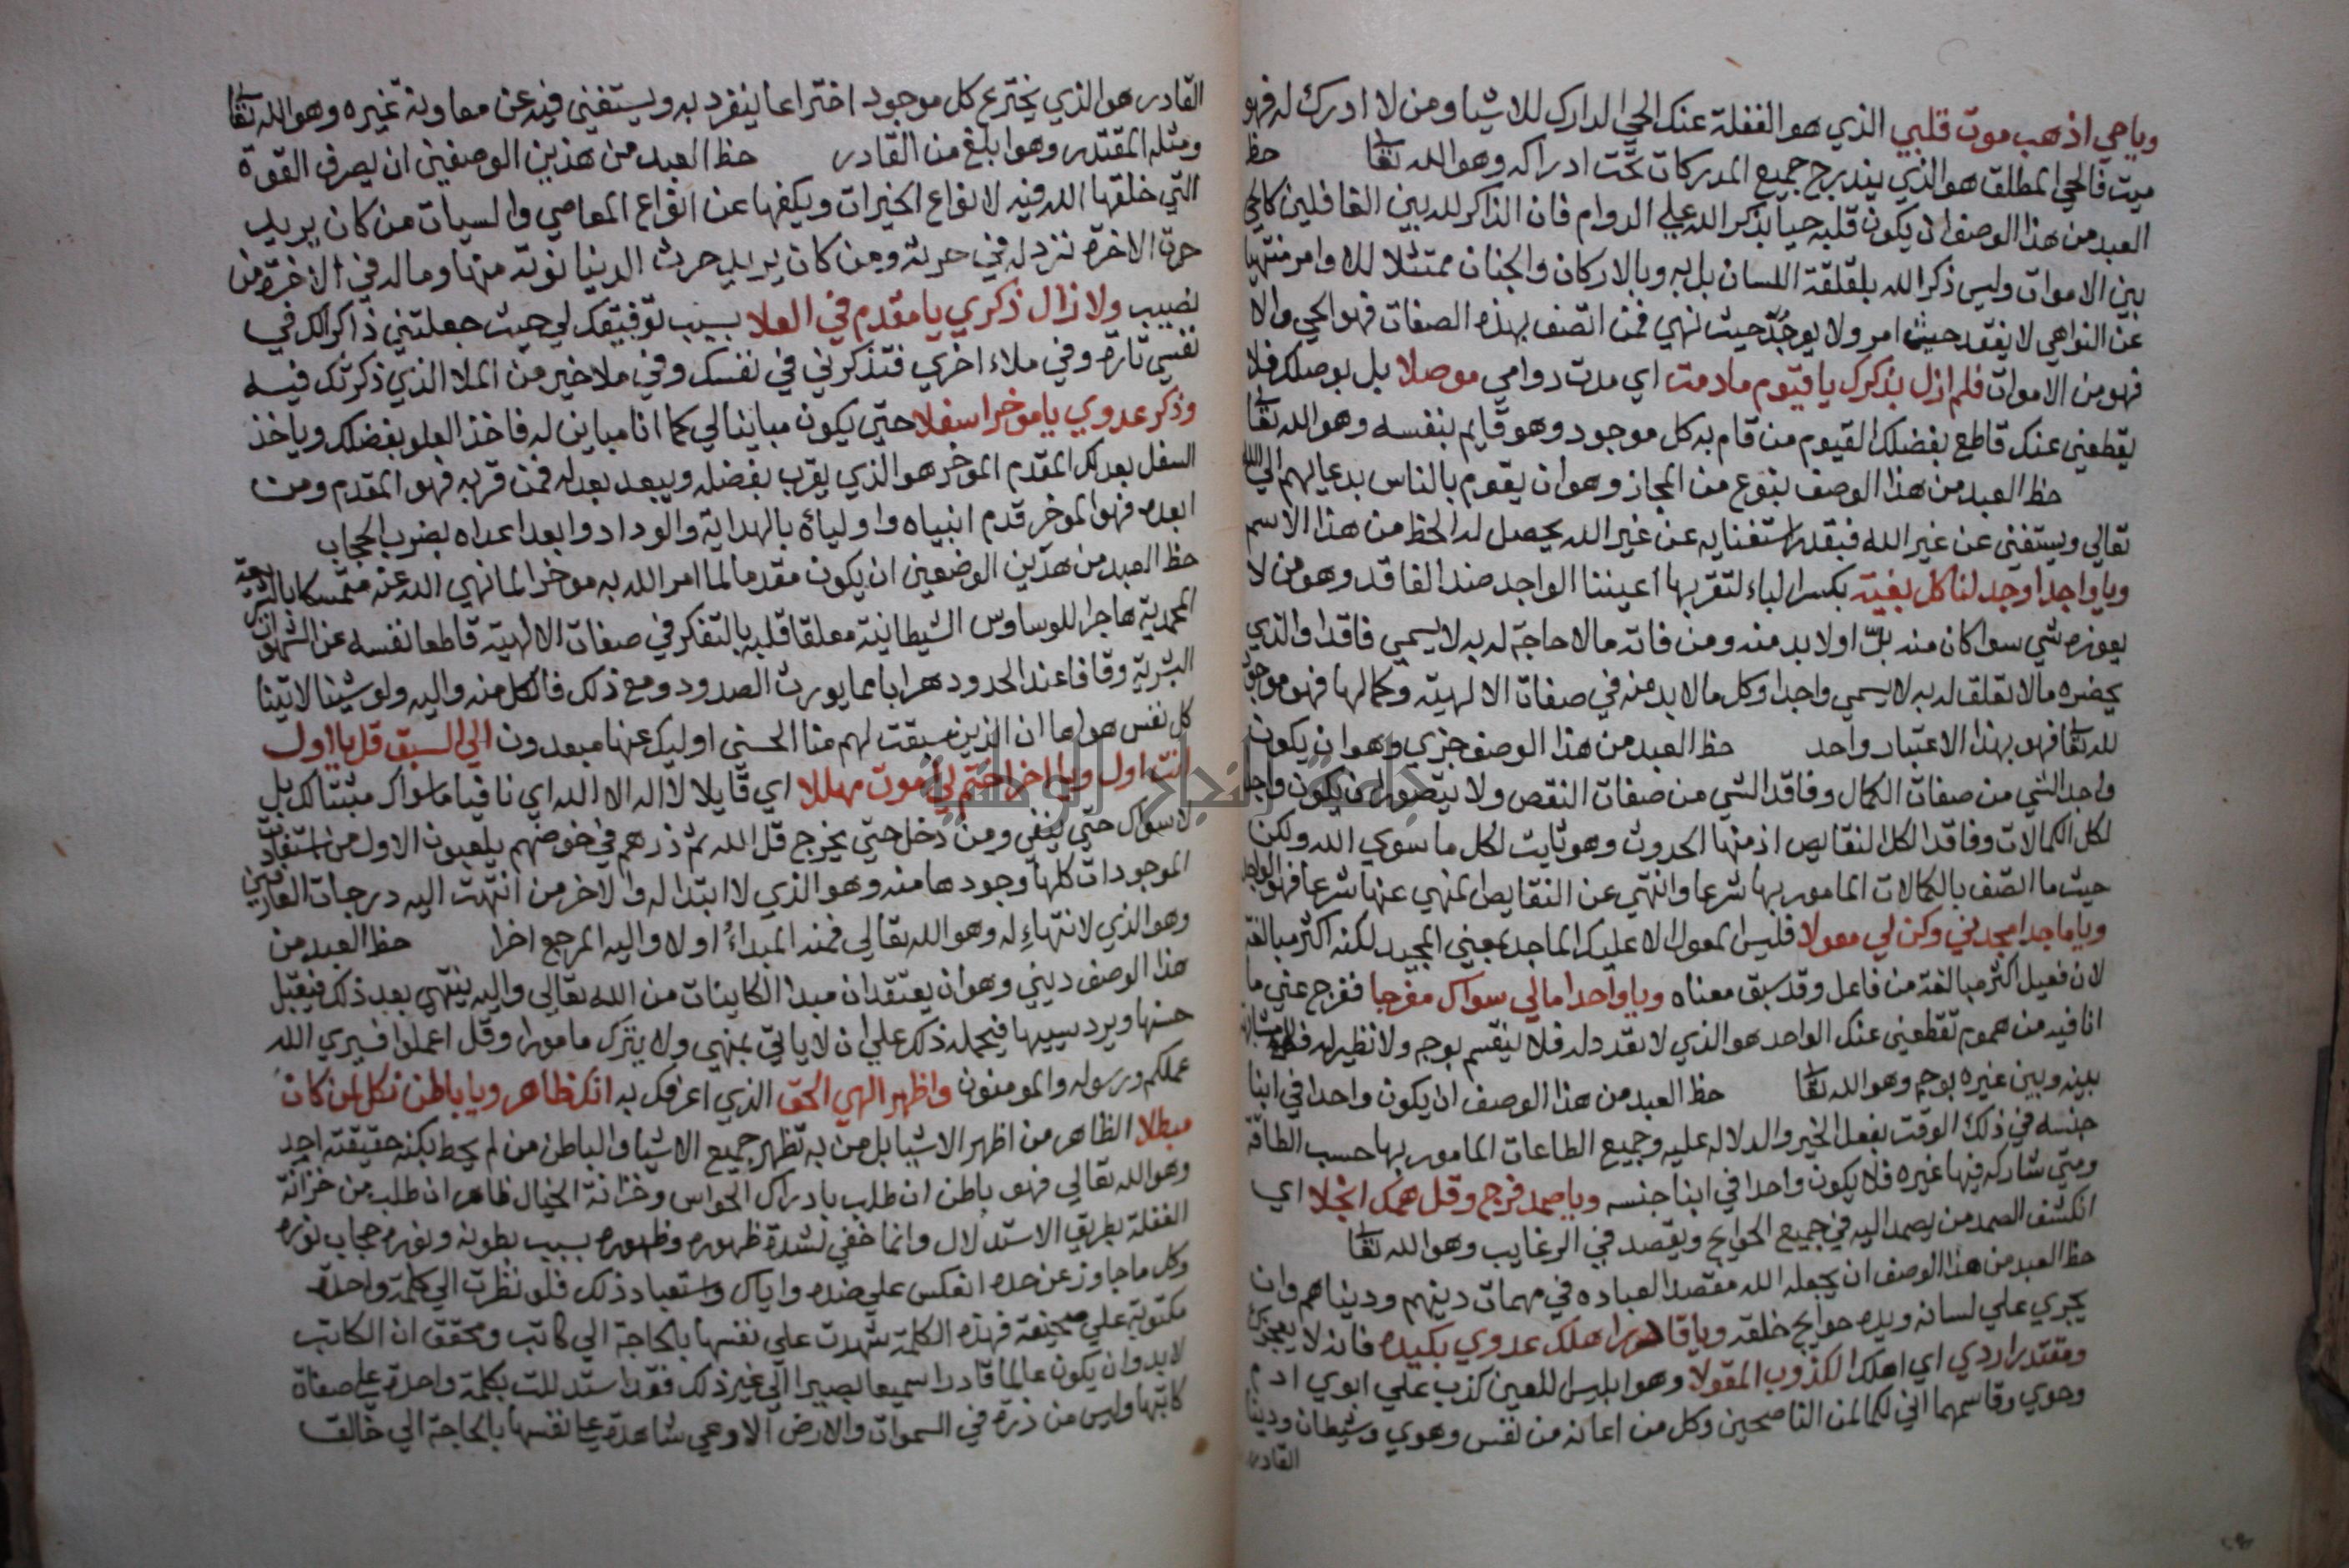 وياحي اذهب موت قلبي الذي هو الغفلة عنك الحي الدارك للاشيا ومن لا ادرك له فهو
ميت فالحي المطلق هو الذي يندرج جميع المدركات تحت ادراكه وهو الله تعا حظ
العبد من هذا الوصف ان يكون قلبه حيا بذكر الله علي الدوام فان الذاكر لله بين الغافلين كالحي
بين الاموات وليس ذكر الله بلقلقة اللسان بل به وبالاركان والجنان ممتثلا للاوامر منتهيا
عن النواهي لا يفقد حيث امر ولا يوجد حيث نهي فمن اتصف بهذه الصفات فهو الحي والا
فهو من الاموات فلم ازل بذكرك يا قيوم ما دمت اي مدت دوامي موصلا بل بوصلك فلا
يقطعني عنك قاطع بفضلك القيوم من قام به كل موجود وهو قايم بنفسه وهو الله تعا
حظ العبد من هذا الوصف بنوع من المجاز وهو ان يقوم بالناس بدعايهم الي الله
تعالي ويستغني عن غير الله فبقدر استغنايه عن غير الله يحصل له الحظ من هذا الاسم
ويا واجد اوجد لنا كل بغية بكسر الباء لتقر بها اعيننا الواجد ضد الفاقد وهو من لا
يعوزه شي سوا كان منه بد او لا بد منه ومن فاته ما لا حاجة له به لا يسمي فاقدا والذي
يحضره ما لا تعلق له به لا يسمي واجدا وكل ما لا بد منه في صفات الالهية وكمالها فهو موجود
لله تعا فهو بهذا الاعتبار واجد حظ العبد من هذا الوصف جزي وهو ان يكون
واجد الشي من صفات الكمال وفاقد الشي من صفات النقص ولا يتصور ان يكون واجدا
لكل الكمالات وفاقدا لكل النقايص اذ منها الحدوث وهو ثابت لكل ما سوي الله ولكن
حيث ما اتصف بالكمالات المامور بها شرعا وانتهي عن النقايص المنهي عنها شرعا فهو الواجد
ويا ماجد امجدني وكن لي معولا فليس لمعول الا عليك الماجد بمعني المجيد لكنه اكثر مبالغة
لان فعيل اكثر مبالغة من فاعل وقد سبق معناه ويا واحدا مالي سواك مفرجا ففرج عني ما
انا فيه من هموم تقطعني عنك الواحد هو الذي لا تعدد له فلا ينقسم بوجه ولا نظير له فلا مشاركة
بينه وبين غيره بوجه وهو الله تعا حظ العبد من هذا الوصف ان يكون واحدا في ابنا
جنسه في ذلك الوقت بفعل الخير والدلاله عليه وجميع الطاعات المامور بها حسب الطاقة
ومتي شاركه فيها غيره فلا يكون واحدا في ابنا جنسه ويا صمد فرج وقل همك انجلا اي
انكشف الصمد من يصمد اليه في جميع الحوايج ويقصد في الرغايب وهو الله تعا
حظ العبد من هذا الوصف ان يجعله الله مقصدا لعباده في مهمات دينهم ودنياهم وان
يجري علي لسانه ويده حوايج خلقه ويا قادرا اهلك عدوي بكيده فانه لا يعجزك
ومقتدرا ردي اي اهلك الكذوب المقولا وهو ابليس اللعين كذب علي ابوي ادم
وحوي وقاسمهما اني لكما لمن الناصحين وكل من اعانه من نفس وهوي وشيطان ودنيا
القادر
القادر هو الذي يخترع كل موجود اختراعا ينفرد به ويستغني فيه عن معاونة غيره وهو الله تعا
ومثله المقتدر وهو ابلغ من القادر حظ العبد من هذين الوصفين ان يصرف القوة
التي خلقها الله فيه لانواع الخيرات ويكفها عن انواع المعاصي والسيات من كان يريد
حرث الاخرة نزد له في حرثه ومن كان يريد حرث الدنيا نوته منها وما له في الاخرة من
نصيب ولا زال ذكري يا مقدم في العلا بسبب توفيقك لي حيث جعلتني ذاكرا لك في
نفسي تارة وفي ملاء اخري فتذكرني في نفسك وفي ملا خير من الملا الذي ذكرتك فيه
وذكر عدوي يا موخرا سفلا حتي يكون مباينا لي كما انا مباين له فاخذ العلو بفضلك وياخذ
السفل بعدلك المقدم الموخر هو الذي يقرب بفضله ويبعد بعدله فمن قربه فهو المقدم ومن
ابعده فهو الموخر قدم انبياه واولياه بالهداية والوداد وابعد اعداه بضرب الحجاب
حظ العبد من هذين الوصفين ان يكون مقدما لما امر الله به موخرا لما نهي الله عنه متمسكا بالشريعة
المحمدية هاجرا للوساوس الشيطانية معلقا قلبه بالتفكر في صفات الالهية قاطعا نفسه عن الشهوات
البشرية وقافا عند الحدود هرابا مما يورث الصدود ومع ذلك فالكل منه واليه ولو شينا لاتينا
كل نفس هواها ان الذين سبقت لهم منا الحسني اوليك عنها مبعدون الي السبق قل يا اول
انت اول ويا اخر اختم لي اموت مهللا اي قايلا لا اله الا الله اي نافيا ما سواك مثبتا لك بل
لا سواك حتي ينفي ومن دخل حتي يخرج قل الله ثم ذرهم في خوضهم يلعبون الاول من استفادت
الموجودات كلها وجودها منه وهو الذي لا ابتدا له والاخر من انتهت اليه درجات العارفين
وهو الذي لا انتهاء له وهو الله تعالي فمنه المبداء اولا واليه المرجع اخرا حظ العبد من
هذا الوصف ديني وهو ان يعتقد ان مبدا الكاينات من الله تعالي واليه ينتهي بعد ذلك فيقبل
حسنها ويرد سييها فيحمله ذلك علي ان لا ياتي بمنهي ولا يترك مامورا وقل اعملوا فسيري الله
عملكم ورسوله والمومنون واظهر الهي الحق الذي اعرفك به انك ظاهر ويا باطن نكل لمن كان
مبطلا الظاهر من اظهر الاشيا بل من به تظهر جميع الاشيا والباطن من لم يحط بكنه حقيقته احد
وهو الله تعالي فهو باطن ان طلب بادراك الحواس وخزانة الخيال ظاهر ان طلب من خزانة
الغفلة بطريق الاستدلال وانما خفي لشدة ظهوره وظهوره بسبب بطونه ونوره حجاب نوره
وكل ما جاوز عن حده انعكس علي ضده واياك واستبعاد ذلك فلو نظرت الي كلمة واحدة
مكتوبة علي صحيفة فهذه الكلمة شهدت علي نفسها بالحاجة الي كاتب ومحقق ان الكاتب
لا بد وان يكون عالما قادرا سميعا بصيرا الي غير ذلك فقد استدللت بكلمة واحدة علي صفاة
كاتبها وليس من ذرة في السموات والارض الا وهي شاهدة علي نفسها بالحاجة الي خالق
جامعة النجاح الوطنية